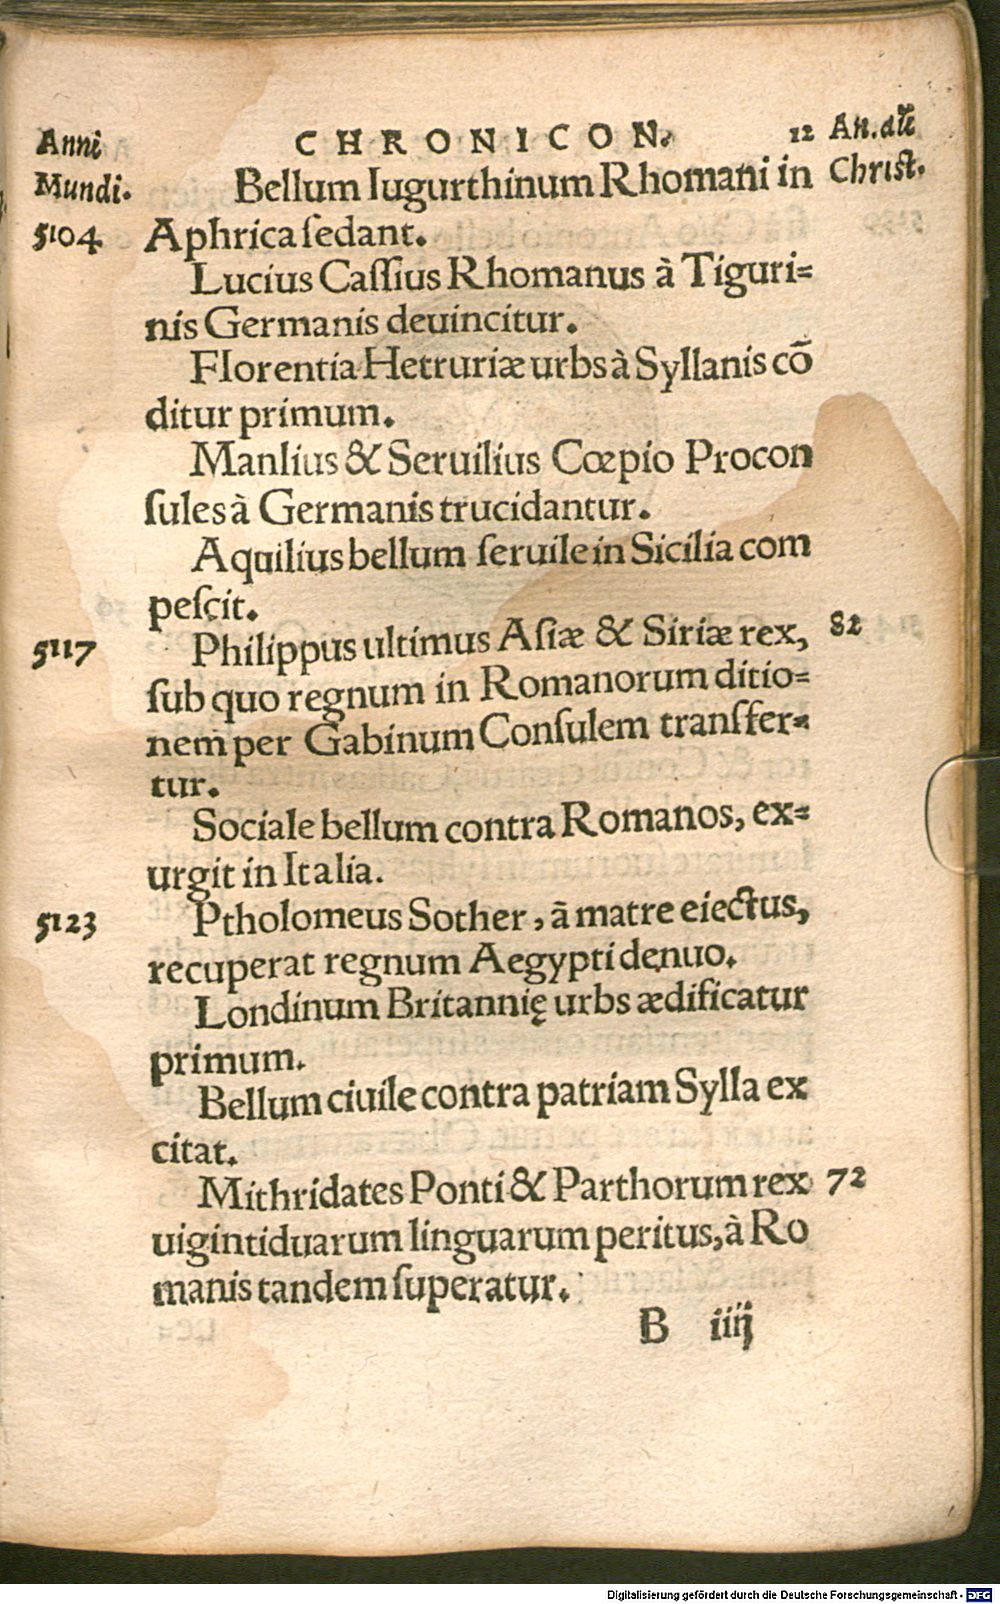 Anni CHRONICON. 12 An. āte
Mundi. Bellum Iugurthinum Rhomani in Christ.
5104 Aphrica ſedant.
Lucius Caſſius Rhomanus à Tiguri⸗
nis Germanis deuincitur.
Florentia Hetruriæ urbs à Syllanis cō
ditur primum.
Manlius & Seruilius Cœpio Procon
ſules à Germanis trucidantur.
Aquilius bellum ſeruile in Sicilia com
peſcit.
5117 Philippus ultimus Aſiæ & Siriæ rex, 82
ſub quo regnum in Romanorum ditio⸗
nem per Gabinum Conſulem transfer⸗
tur.
Sociale bellum contra Romanos, ex⸗
urgit in Italia.
5123 Ptholomeus Sother, ā matre eiectus,
recuperat regnum Aegypti denuo.
Londinum Britannię urbs ædificatur
primum.
Bellum ciuile contra patriam Sylla ex
citat.
Mithridates Ponti & Parthorum rex 72
uigintiduarum linguarum peritus, à Ro
manis tandem ſuperatur.
B iiij
Digitalisierung gefördert durch die Deutsche Forschungsgemeinschaft - DFG